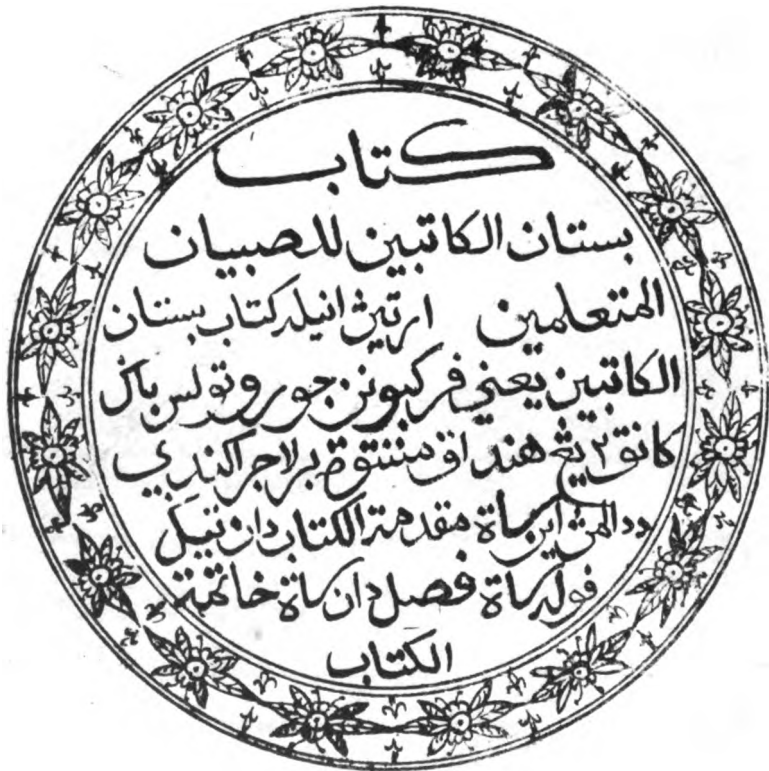 كتاب
بستان الكاتبين للصبيان
المتعلمين ارتيڽ انيله كتاب بستان
الكاتبين يعني فركبونن جوروتولس باݢي
كانق٢ يڠ هنداق مننتوة برلاجر اكندي
ددالمڽ اين ساة مقدمة الكتاب دان تيݢ
فوله ساة فصل دان ساة خاتمة
الكتاب